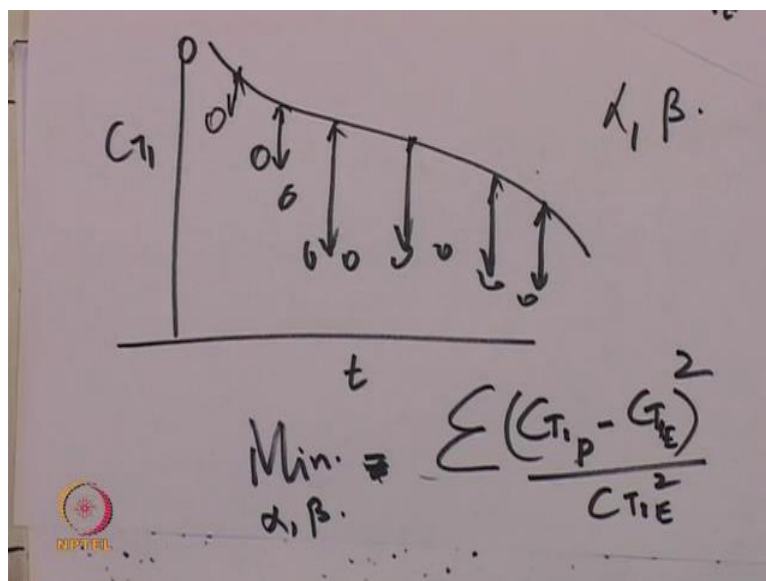 α, β.
C_{T1}
t
Min. = Σ (C_{T1P} - C_{T1E})^2
α, β. C_{T1E}^2
NPTEL